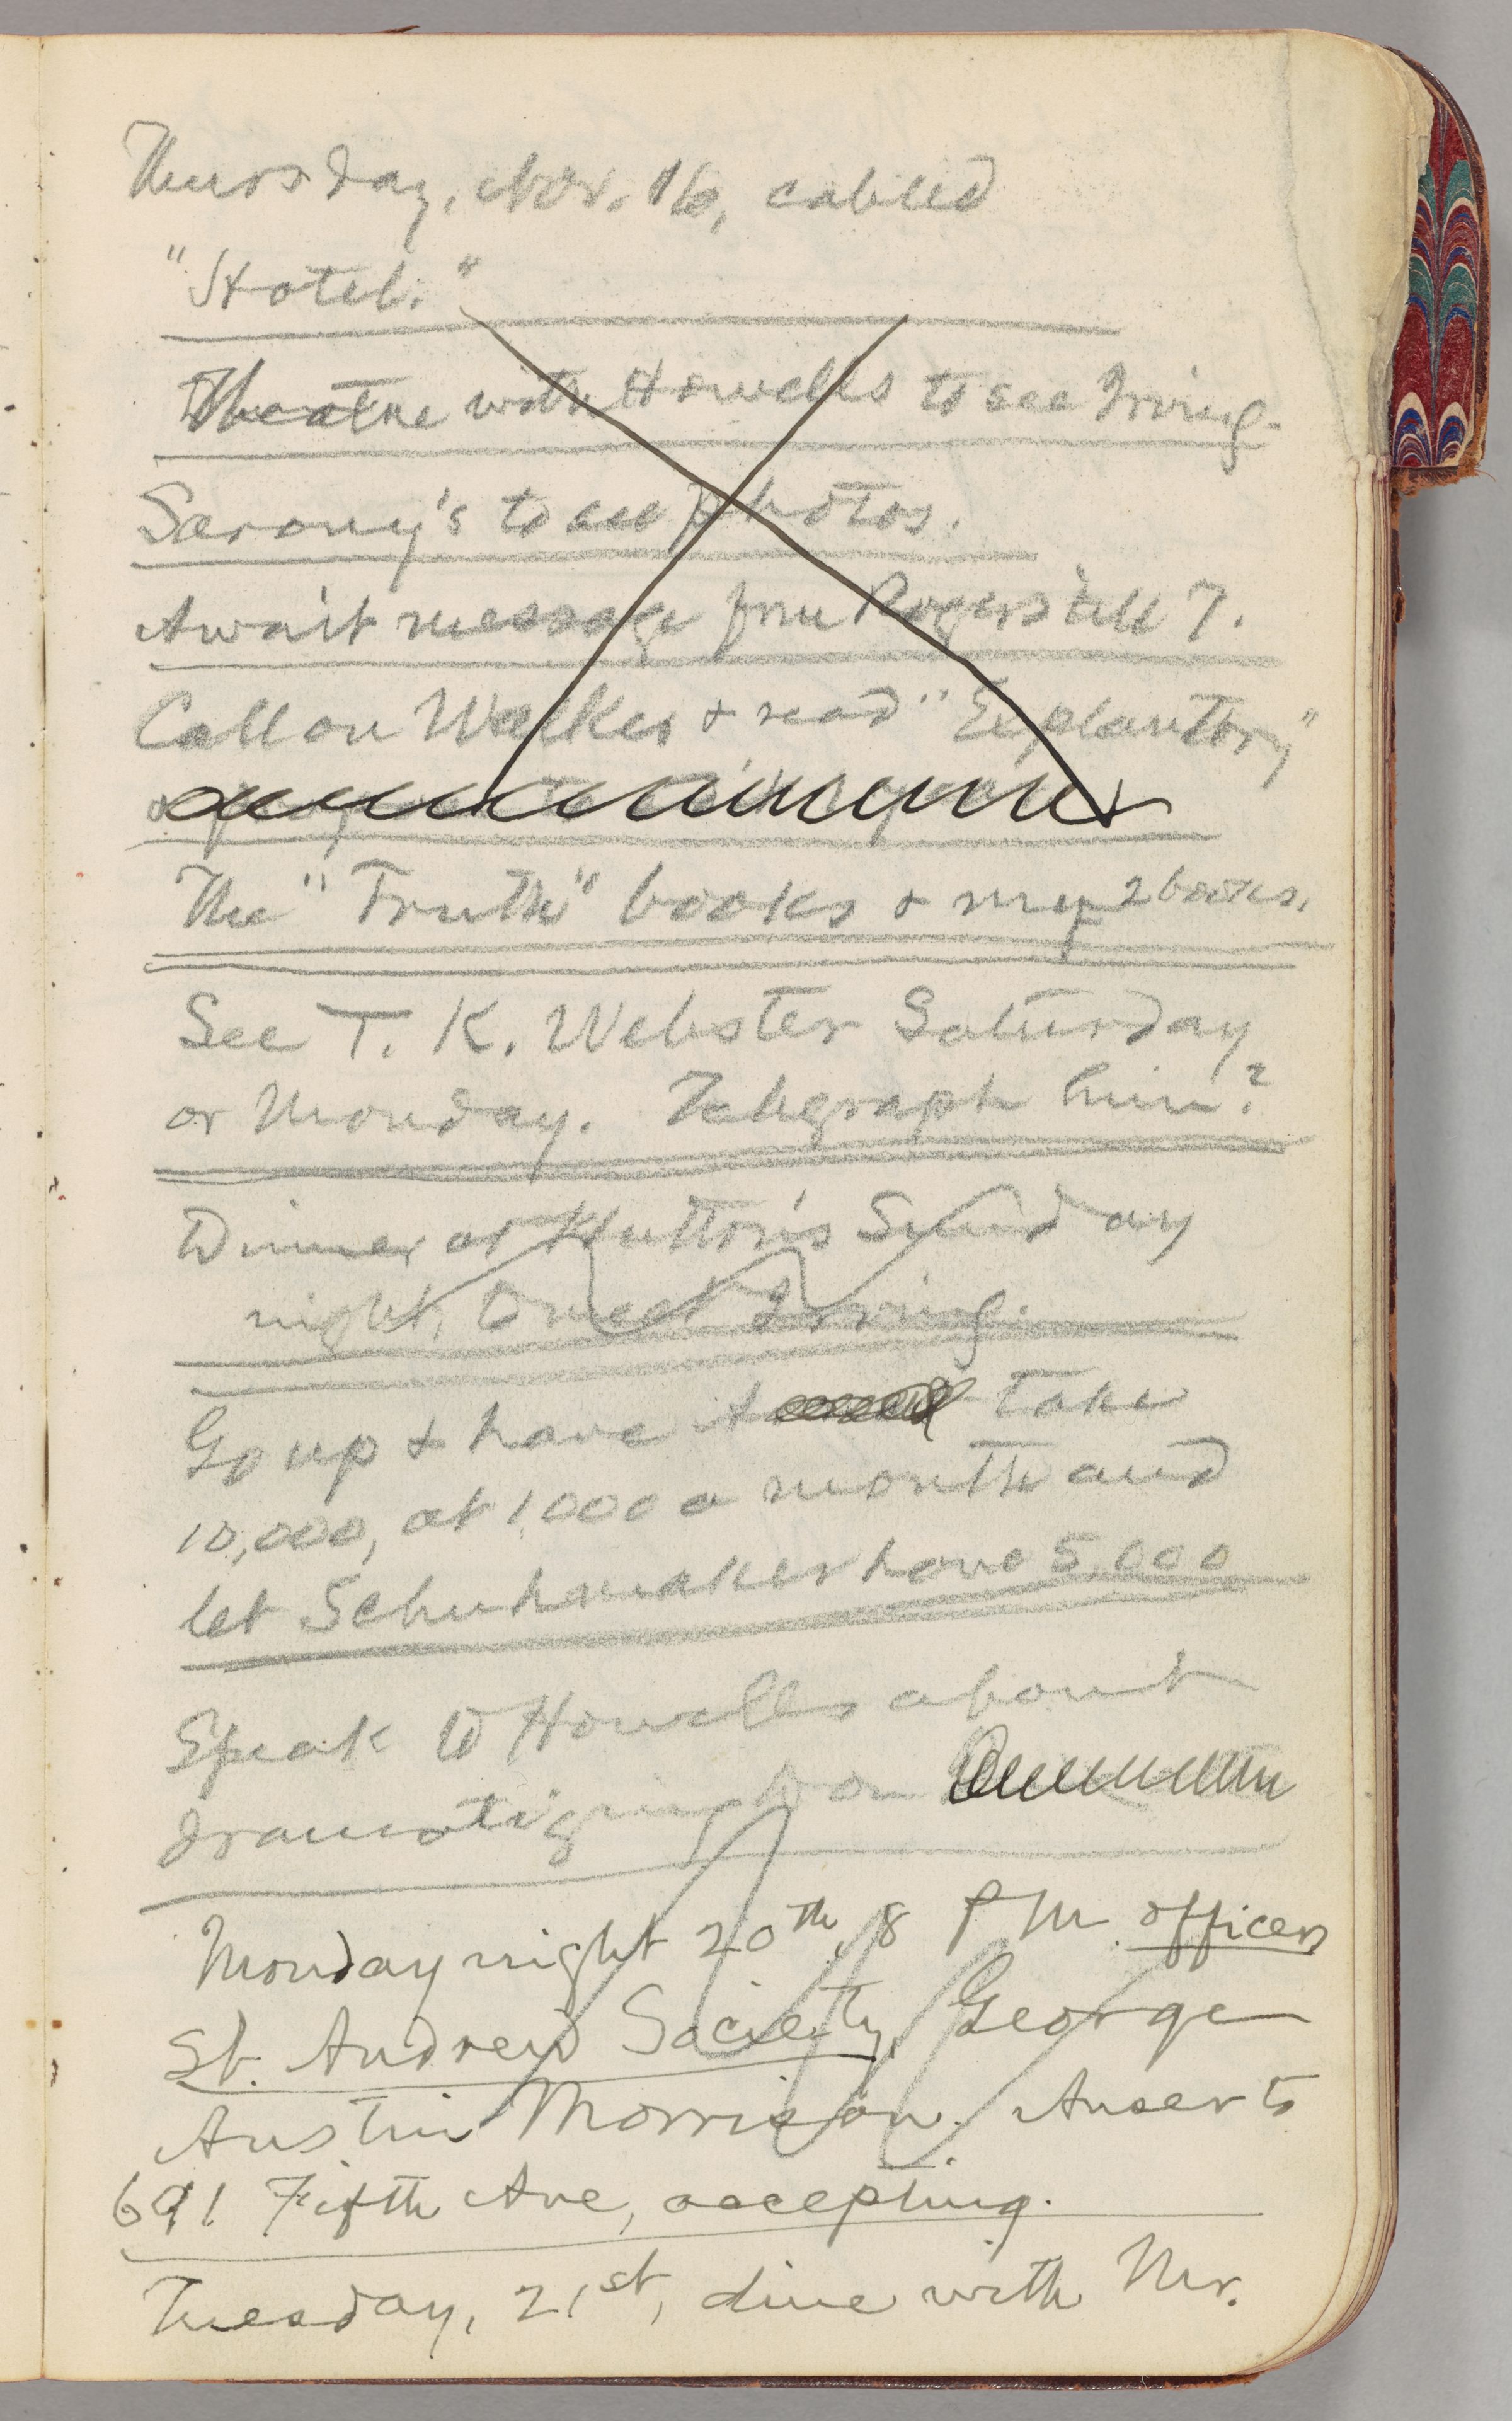 Thursday, Nov. 16, cabled
"Hotel."
Theatre with Howells to see Irving.
Sarony's to see photos.
Await message from Rogers till 7.
Call on Walker & read "Explanitory"
The "Truth" books & my 2 books.
See T. K. Webster Saturday
or Monday. Telegraph him?
Dinner at Hutton's Sunday
night, to meet Irving.
Go up & have A take
10,000, at 1000 a month and
let Schuhmaker have 5,000
Speak to Howells about
dramatizing
Monday night 20th, 8 PM officers
St. Andrew Society, George
Austin Morrison. Anser to
691 Fifth Ave, accepting.
Tuesday, 21st, dine with Mr.